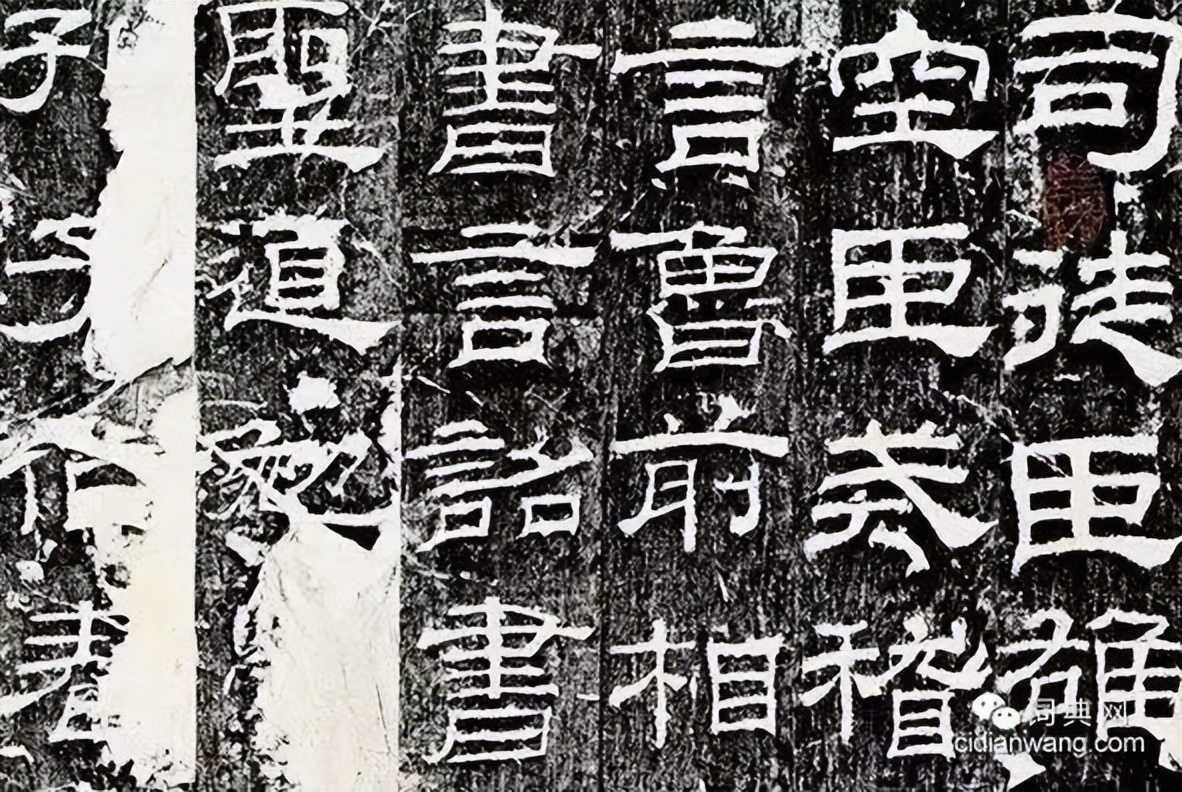 司徒臣雄
空臣戒稽
言魯前相
書言詔書
聖道勉
子子作
词典网
cidianwang.com